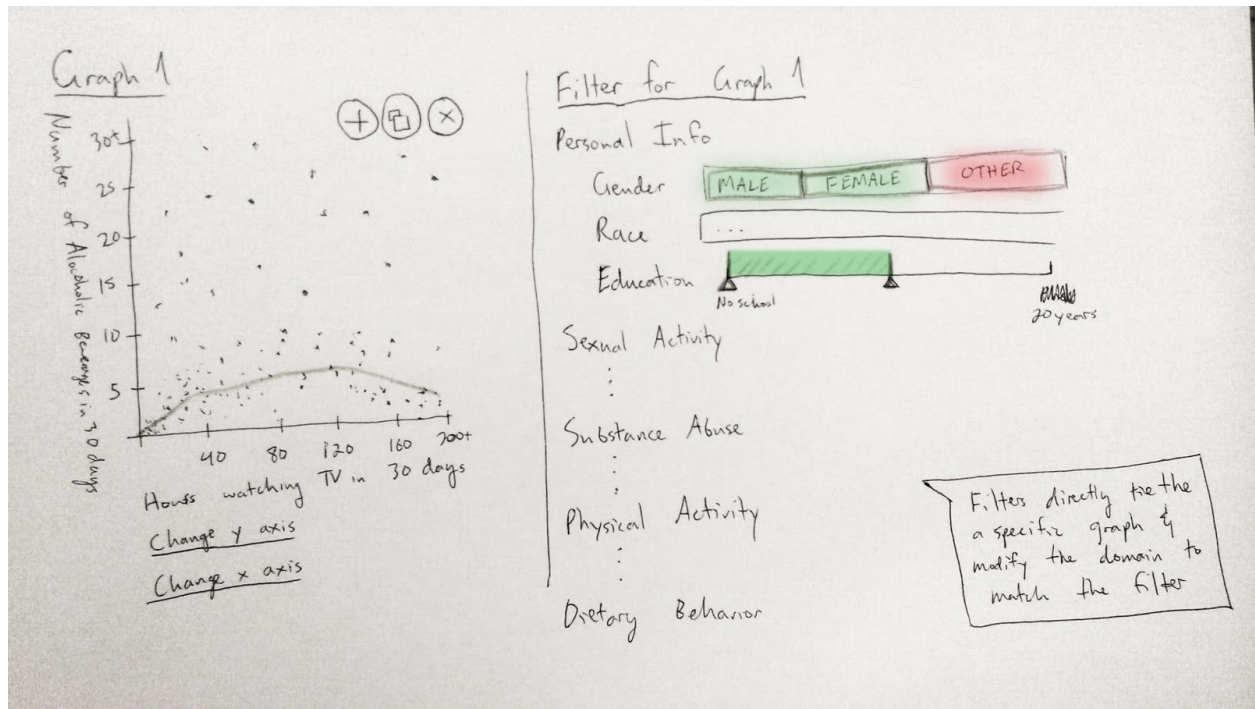 Graph 1
Number of Alcoholic Beverages in 30 days
30+
25
20
15
10
5
40 80 120 160 200+
Hours watching TV in 30 days
Change y axis
Change x axis
Filter for Graph 1
Personal Info
Gender MALE FEMALE OTHER
Race ...
Education
No school
20 years
Sexual Activity
Substance Abuse
Physical Activity
Dietary Behavior
Filters directly tie the
a specific graph &
modify the domain to
match the filter